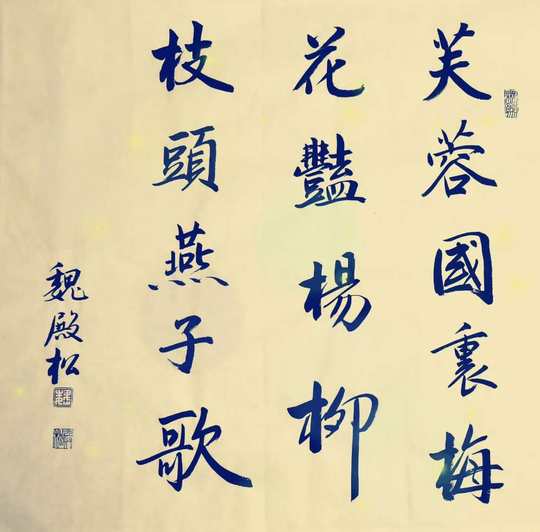 芙蓉國裏梅
花豔楊柳
枝頭燕子歌
魏殿松